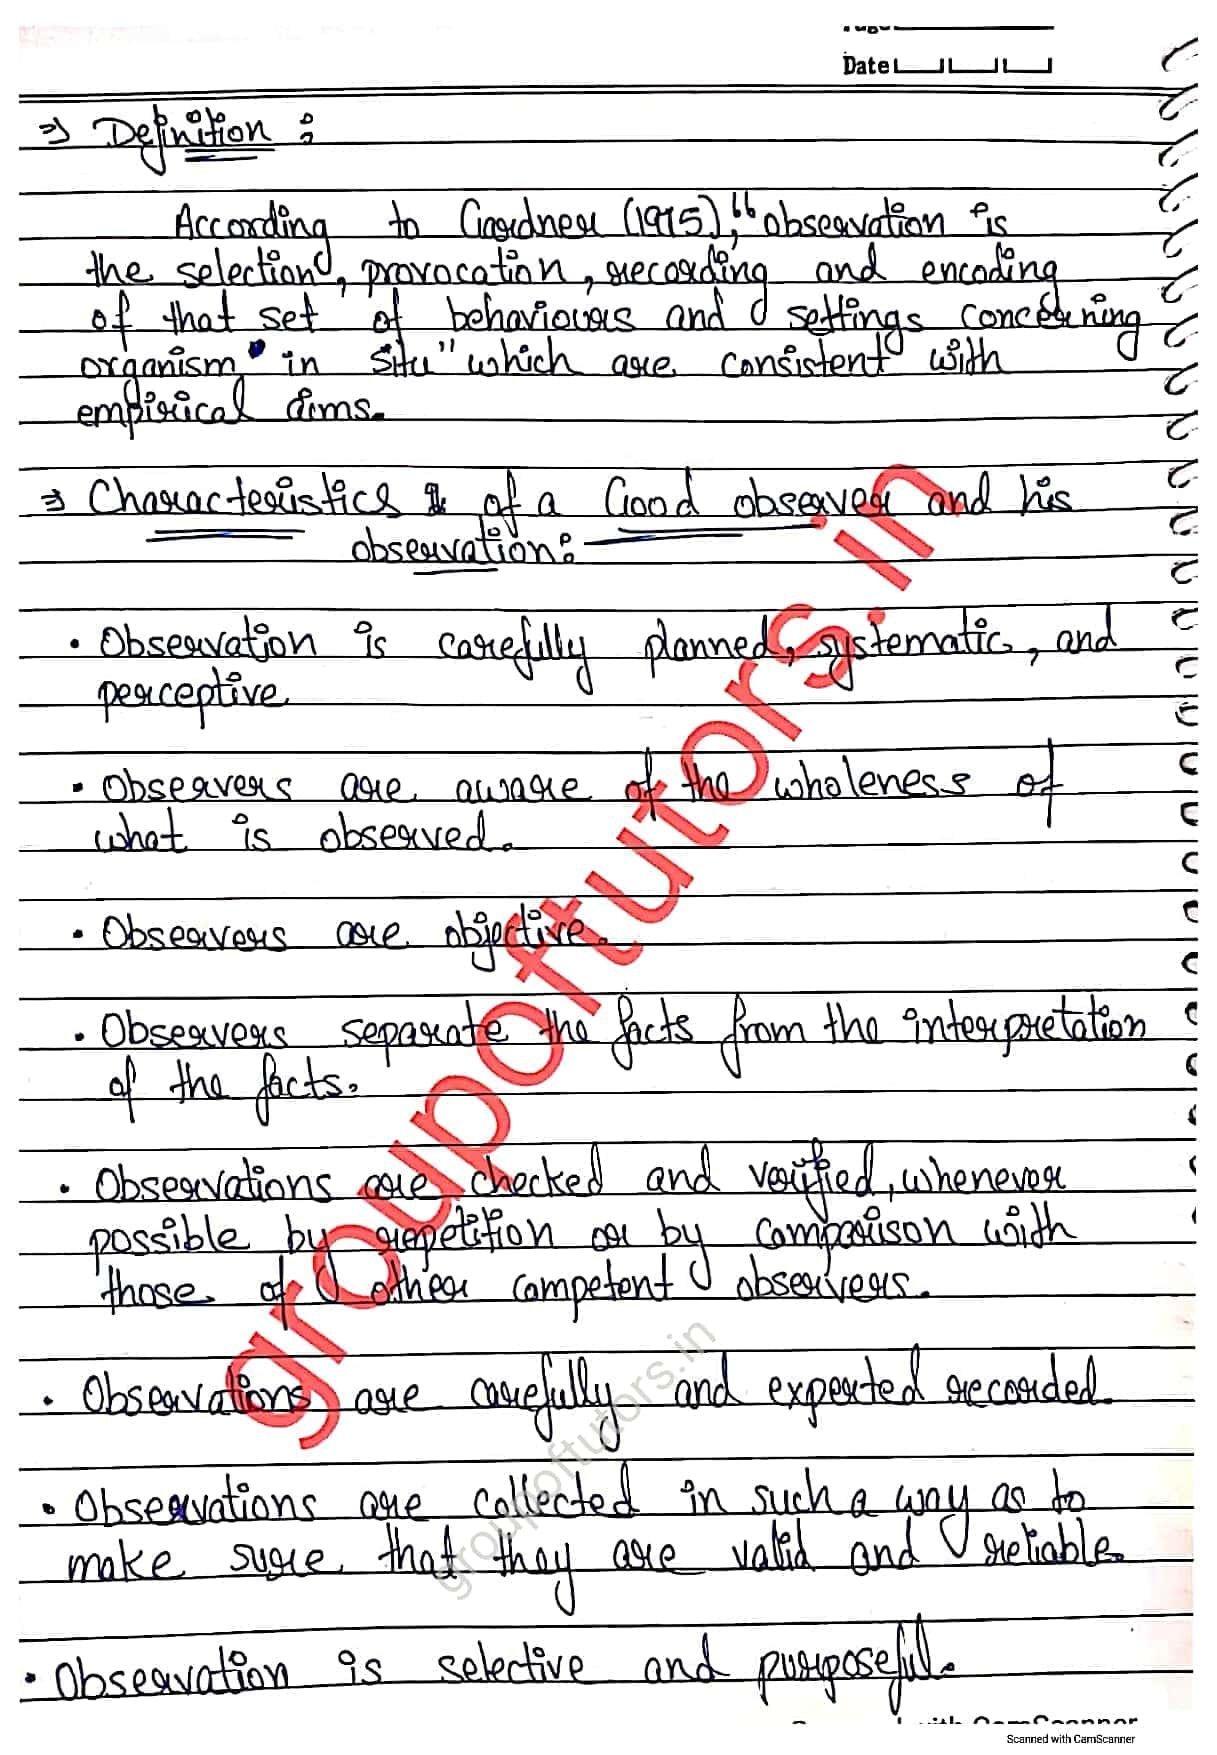 Date
⇒ Definition :
According to Gardner (1975), "observation is
the selection, provocation, recording and encoding
of that set of behaviours and settings concerning
organism "in situ" which are consistent with
empirical aims.
⇒ Characteristics of a Good observer and his
observation:
• Observation is carefully planned, systematic, and
perceptive
• Observers are aware of the wholeness of
what is observed.
• Observers are objective.
• Observers separate the facts from the interpretation
of the facts.
• Observations are checked and verified, whenever
possible by repetition or by comparison with
those of other competent observers.
• Observations are carefully and experted recorded.
• Observations are collected in such a way as to
make sure that they are valid and reliable.
• Observation is selective and purposeful.
groupoftutors.in
groupoftutors.in
Scanned with CamScanner